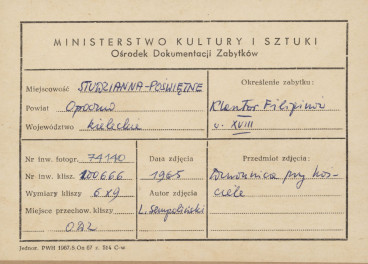 MINISTERSTWO KULTURY I SZTUKI
Ośrodek Dokumentacji Zabytków
Miejscowość STUDZIANNA-POŚWIĘTNE
Powiat Opoczno
Województwo kieleckie
Określenie zabytku:
Klasztor Filipinów
w. XVIII
Nr inw. fotogr. 74140
Nr inw. kliszy 200666
Wymiary kliszy 6x9
Miejsce przechow. kliszy
ODZ
Data zdjęcia
1965
Autor zdjęcia
L. Sempoliński
Przedmiot zdjęcia:
Dzwonnica przy koś-
ciele
Jednor. PWH 1967/5 On 67 z. 514 C-w